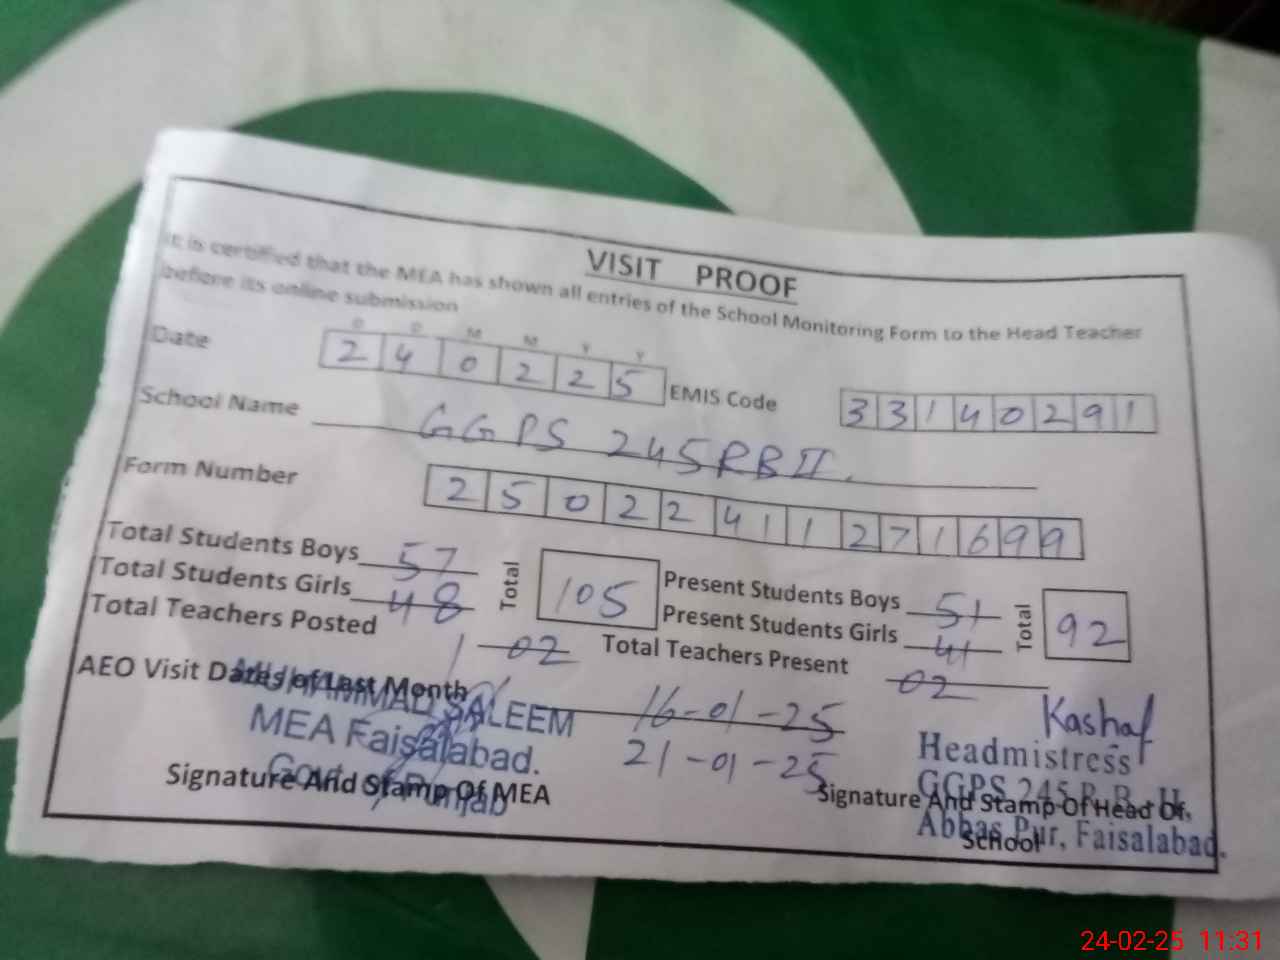 VISIT PROOF
It is certified that the MEA has shown all entries of the School Monitoring Form to the Head Teacher
before its online submission
D D M M Y Y
Date 2 4 0 2 2 5 EMIS Code 3 3 1 4 0 2 9 1
School Name GGPS 245RB II.
Form Number 2 5 0 2 2 4 1 1 2 7 1 6 9 9
Total Students Boys 57 Total 105 Present Students Boys 51 Total 92
Total Students Girls 48 Present Students Girls 41
Total Teachers Posted 02 Total Teachers Present 02
AEO Visit Dates of Last Month 16-01-25
21-01-25
MUHAMMAD SALEEM
MEA Faisalabad.
Govt of Punjab
Signature And Stamp Of MEA
Kashaf
Headmistress
GGPS 245 R.B. II,
Abbas Pur, Faisalabad.
Signature And Stamp Of Head Of
School
24-02-25 11:31